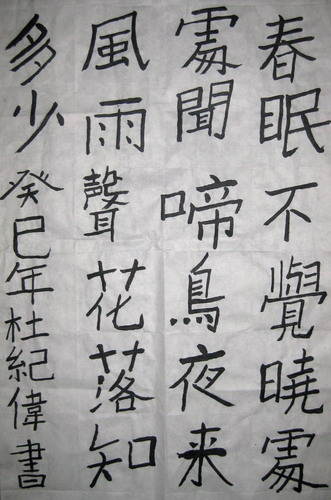 春眠不覺曉處
處聞啼鳥夜来
風雨聲花落知
多少癸巳年杜紀偉書